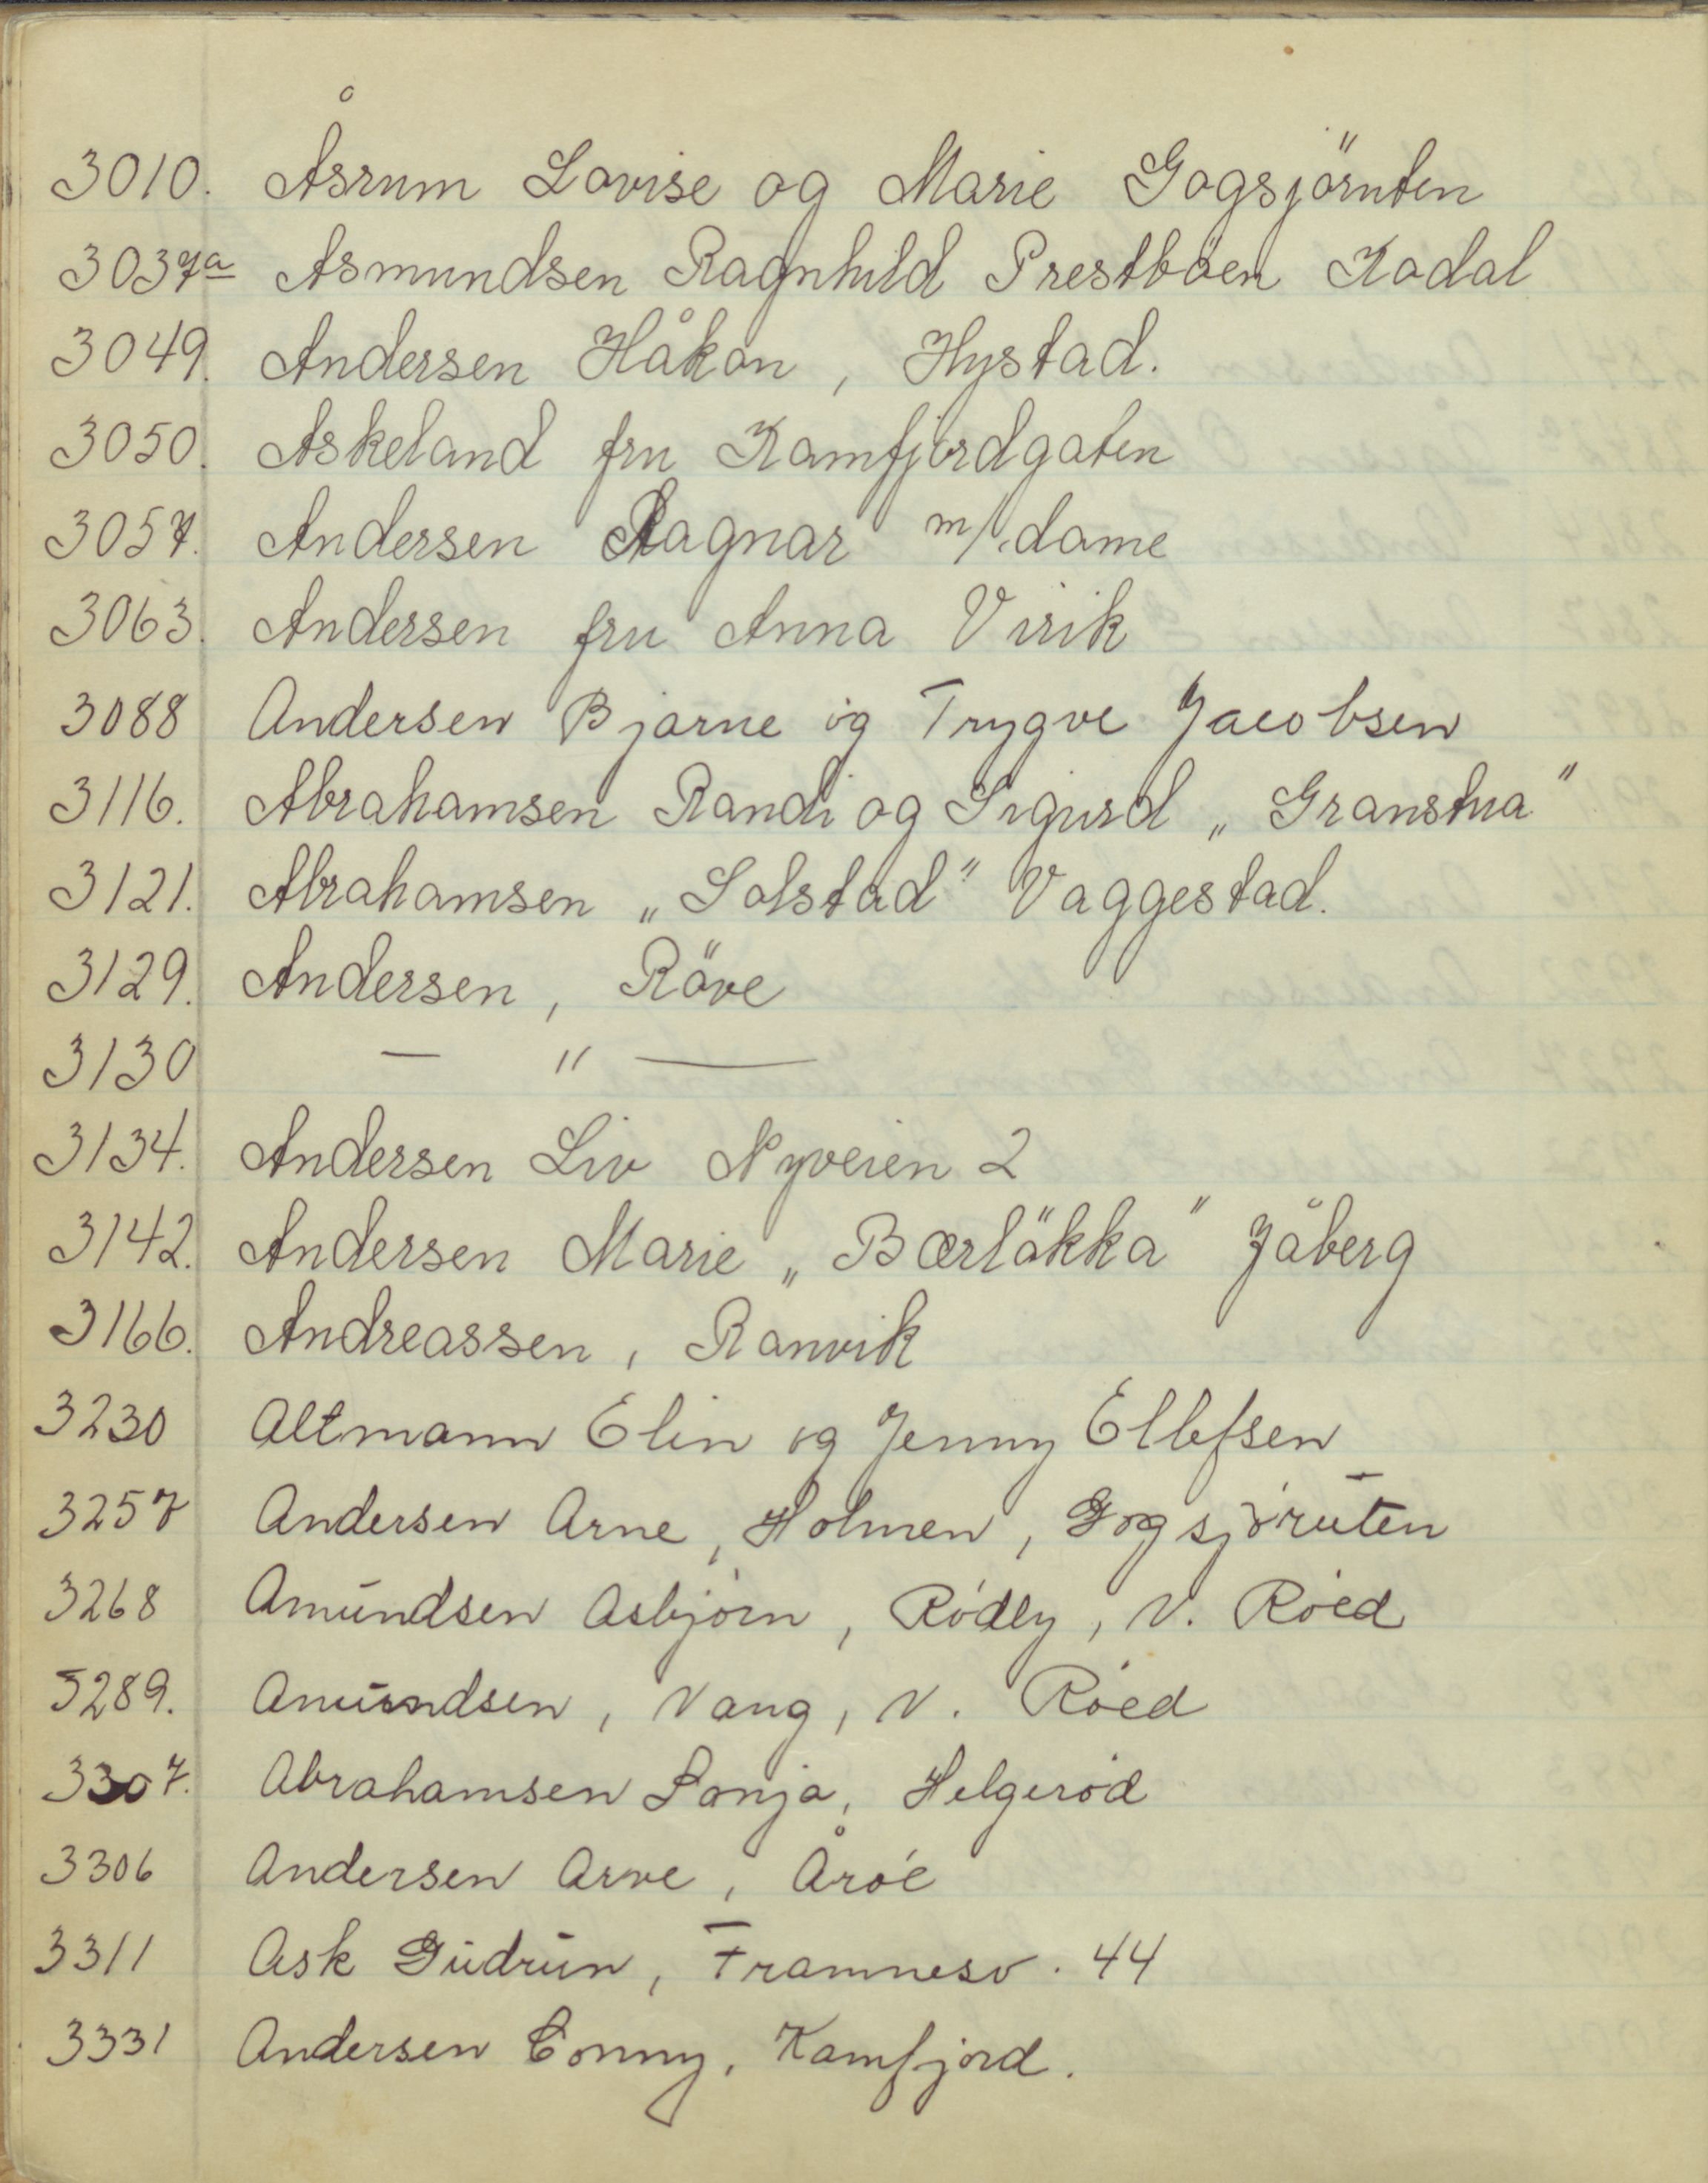 3010. Åsrum Lovise og Marie Gogsjöruten
3037a Asmundsen Ragnhild Prestböen Kodal
3049. Andersen Håkon, Hystad.
3050. Askeland fru Kamfjordgaten
3057. Andersen Ragnar m/dame
3063. Andersen fru Anna Virik
3088 Andersen Bjarne og Trygve Jacobsen
3116. Abrahamsen Randi og Sigurd „Granstua"
3121. Abrahamsen „Solstad" Vaggestad.
3129. Andersen, Röve
3130 — " —
3134. Andersen Liv Nyveien 2
3142. Andersen Marie „Bærlökka" Jåberg
3166. Andreassen, Ranvik
3230 Altmann Elin og Jenny Ellefsen
3257 Andersen Arne, Holmen, Gogsjøruten
3268 Amundsen Asbjørn, Rødby, V. Røed
3289. Amundsen, Vang, V. Røed
3307. Abrahamsen Sonja, Helgerød
3306 Andersen Arve, Årøe
3311 Ask Gudrun, Framnesv. 44
3331 Andersen Conny, Kamfjord.